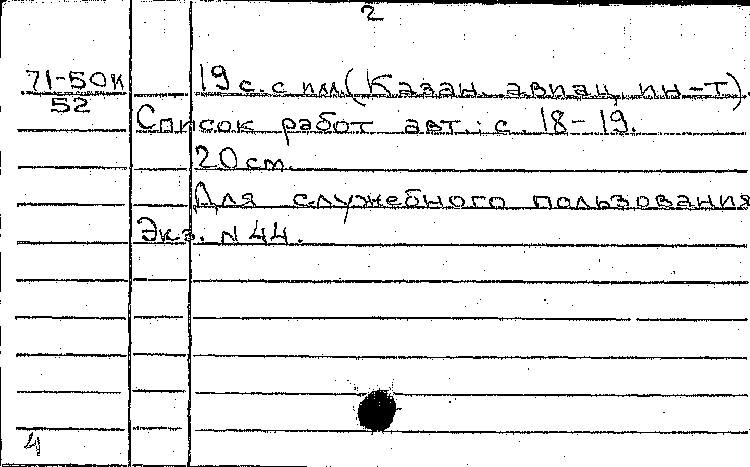 2
71-50К
52
19 с. с ил. (Казан. авиац. ин-т).
Список работ авт.: с. 18-19.
20 см.
Для служебного пользования
Экз. N 44.
4